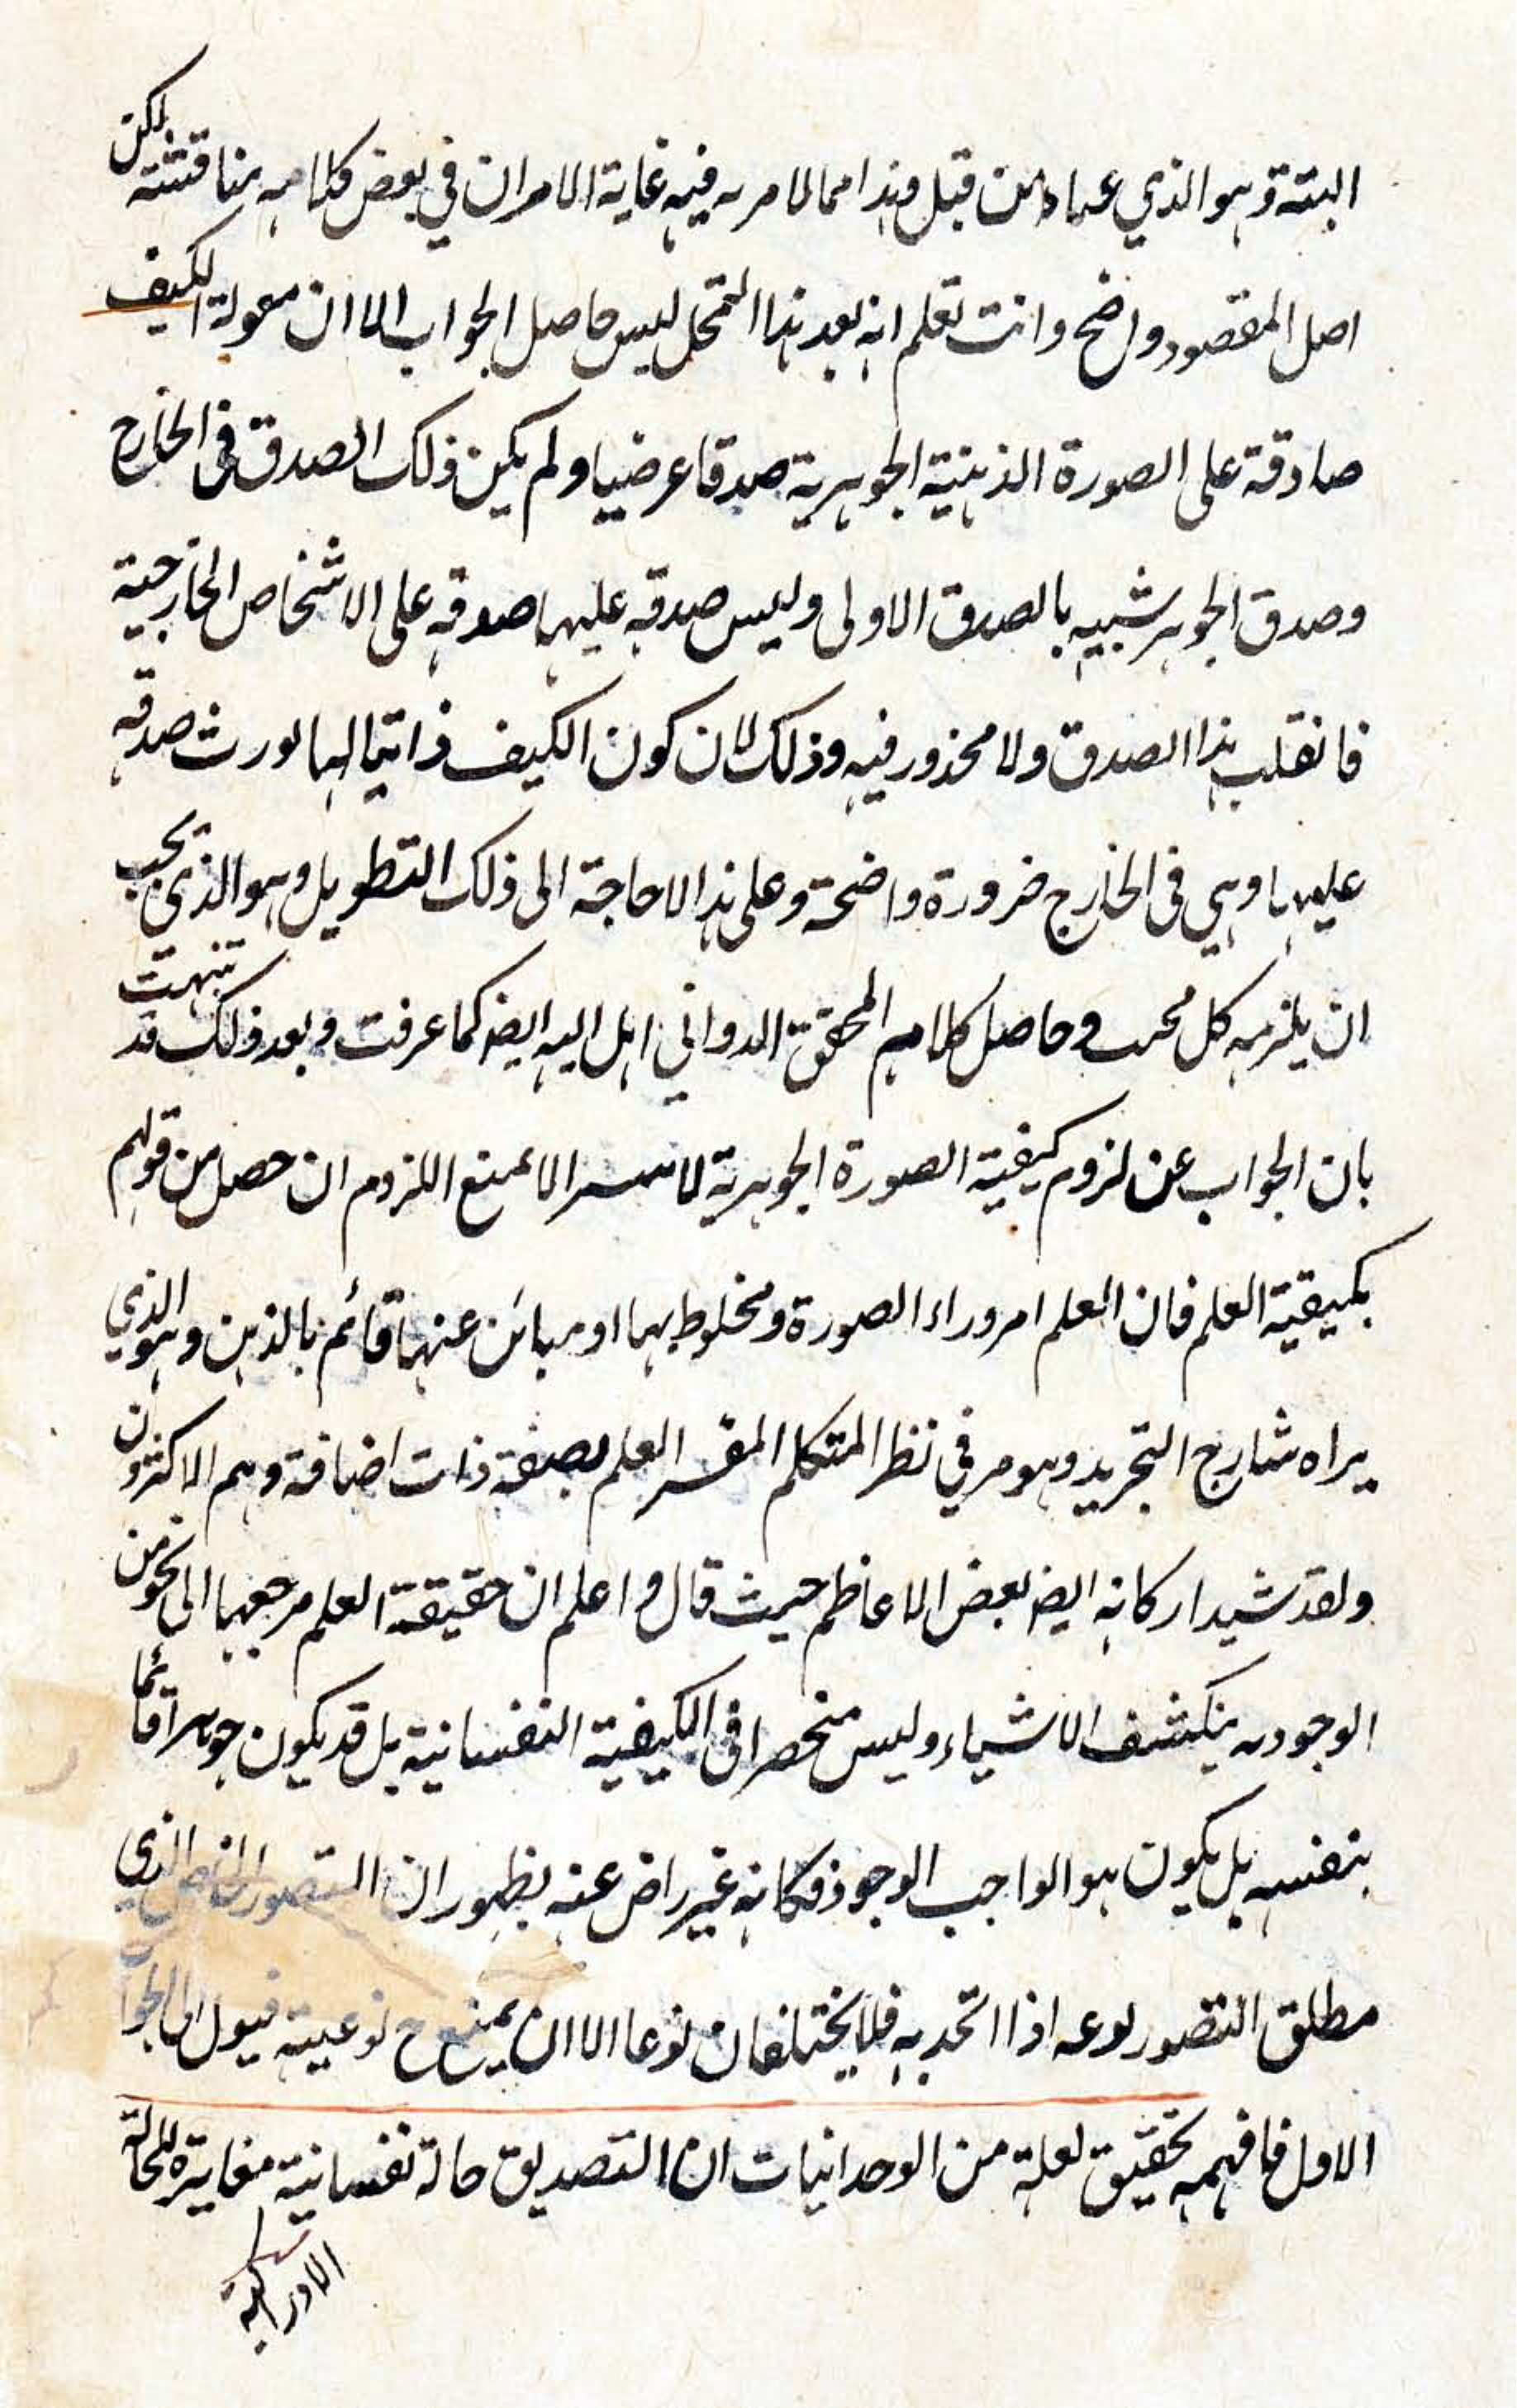 البتة وهو الذي عماد من قبل وهذا مما لا مرية فيه غاية الامر ان في بعض كلامه مناقشة لكن
اصل المقصود واضح وانت تعلم انه بعد هذا التمحل ليس حاصل الجواب الا ان مقولة الكيف
صادقة على الصورة الذهنية الجوهرية صدقا عرضيا ولم يكن ذلك الصدق في الخارج
وصدق الجوهر شبيه بالصدق الاولى وليس صدقه عليها صدقه على الاشخاص الخارجية
فانقلب هذا الصدق ولا محذور فيه وذلك لان كون الكيف ذاتيا لها يورث صدقه
عليها وهي في الخارج ضرورة واضحة وعلى هذا لا حاجة الى ذلك التطويل وهو الذي يجب
ان يلزمه كل وحاصل كلام المحقق الدواني اهل اليه ايضا كما عرفت وبعد ذلك قد تنبهت
بان الجواب عن لزوم كيفية الصورة الجوهرية لا الا بمنع اللزوم ان حصل من قولهم
بكيفية العلم فان العلم امر وراء الصورة ومخلوط بها او مبائن عنها قائم بالذهن وهو الذي
يراه شارح التجريد وهو مر في نظر المتكلم المفسر العلم بصفة ذات اضافة وهم الاكثرون
ولقد شيد اركانه ايضا بعض الاعاظم حيث قال واعلم ان حقيقة العلم مرجعها الى نحو من
الوجود به ينكشف الاشياء وليس منحصرا في الكيفية النفسانية بل قد يكون جوهرا قائما
بنفسه بل يكون هو الواجب الوجود فكانه غير راض عنه يظهر ان التصور الخاص الذي
مطلق التصور نوعه اذا اتحد به فلا يختلفان نوعا الا ان يمنع ح نوعيته فيول الى الجواب
الاول فافهمه تحقيق لعله من الوجدانيات ان التصديق حالة نفسانية مغايرة للحالة
الادراكية